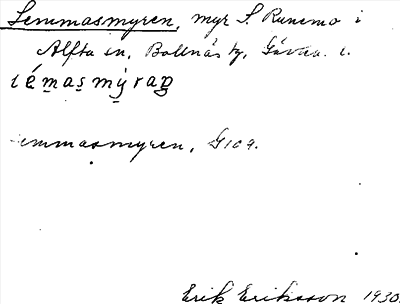 Lemmasmyren, myr S. Runemo i
Alfta sn, Bollnäs tg, Gävleb. l.
lémasmýraŋ
Lemmasmyren, G 109.
Erik Eriksson 1930.